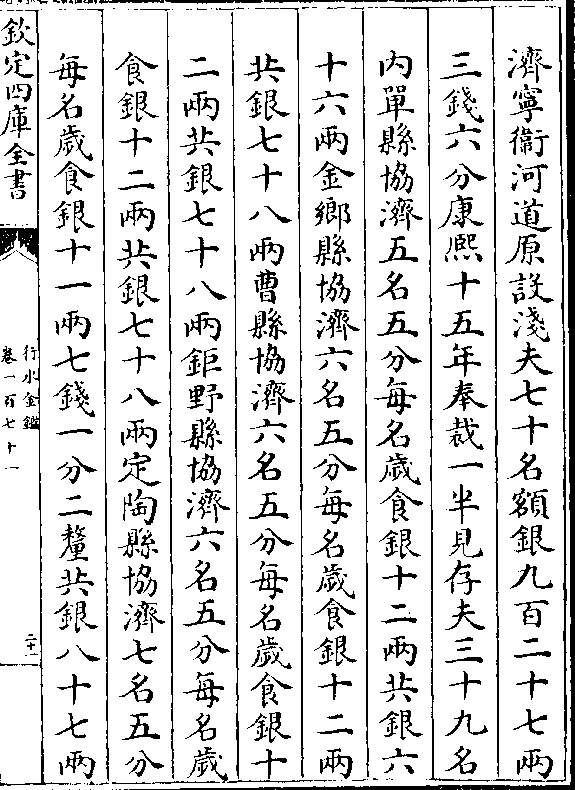 濟寧衛河道原設淺夫七十名額銀九百二十七兩
三錢六分康熙十五年奉裁一半見存夫三十九名
内單縣協濟五名五分每名歲食銀十二兩共銀六
十六兩金鄉縣協濟六名五分每名歲食銀十二兩
共銀七十八兩曹縣協濟六名五分每名歲食銀十
二兩共銀七十八兩鉅野縣協濟六名五分每名歲
食銀十二兩共銀七十八兩定陶縣協濟七名五分
每名歲食銀十一兩七錢一分二釐共銀八十七兩
欽定四庫全書
行水金鑑
卷一百七十一
二十一